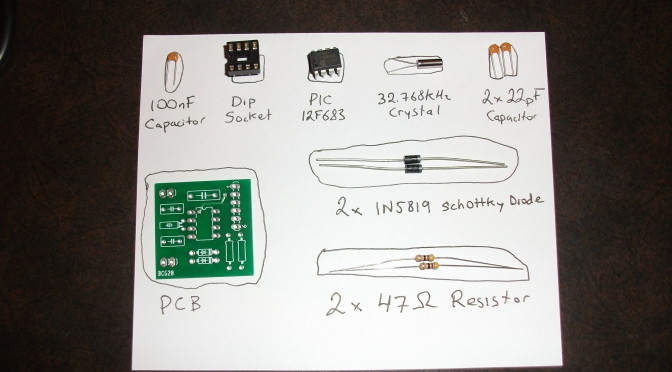 100nF
Capacitor
Dip
Socket
PIC
12F683
32.768KHz
Crystal
2x 22pF
Capacitor
2x 1N5819 Schottky Diode
BCG20
PCB
2x 47Ω Resistor